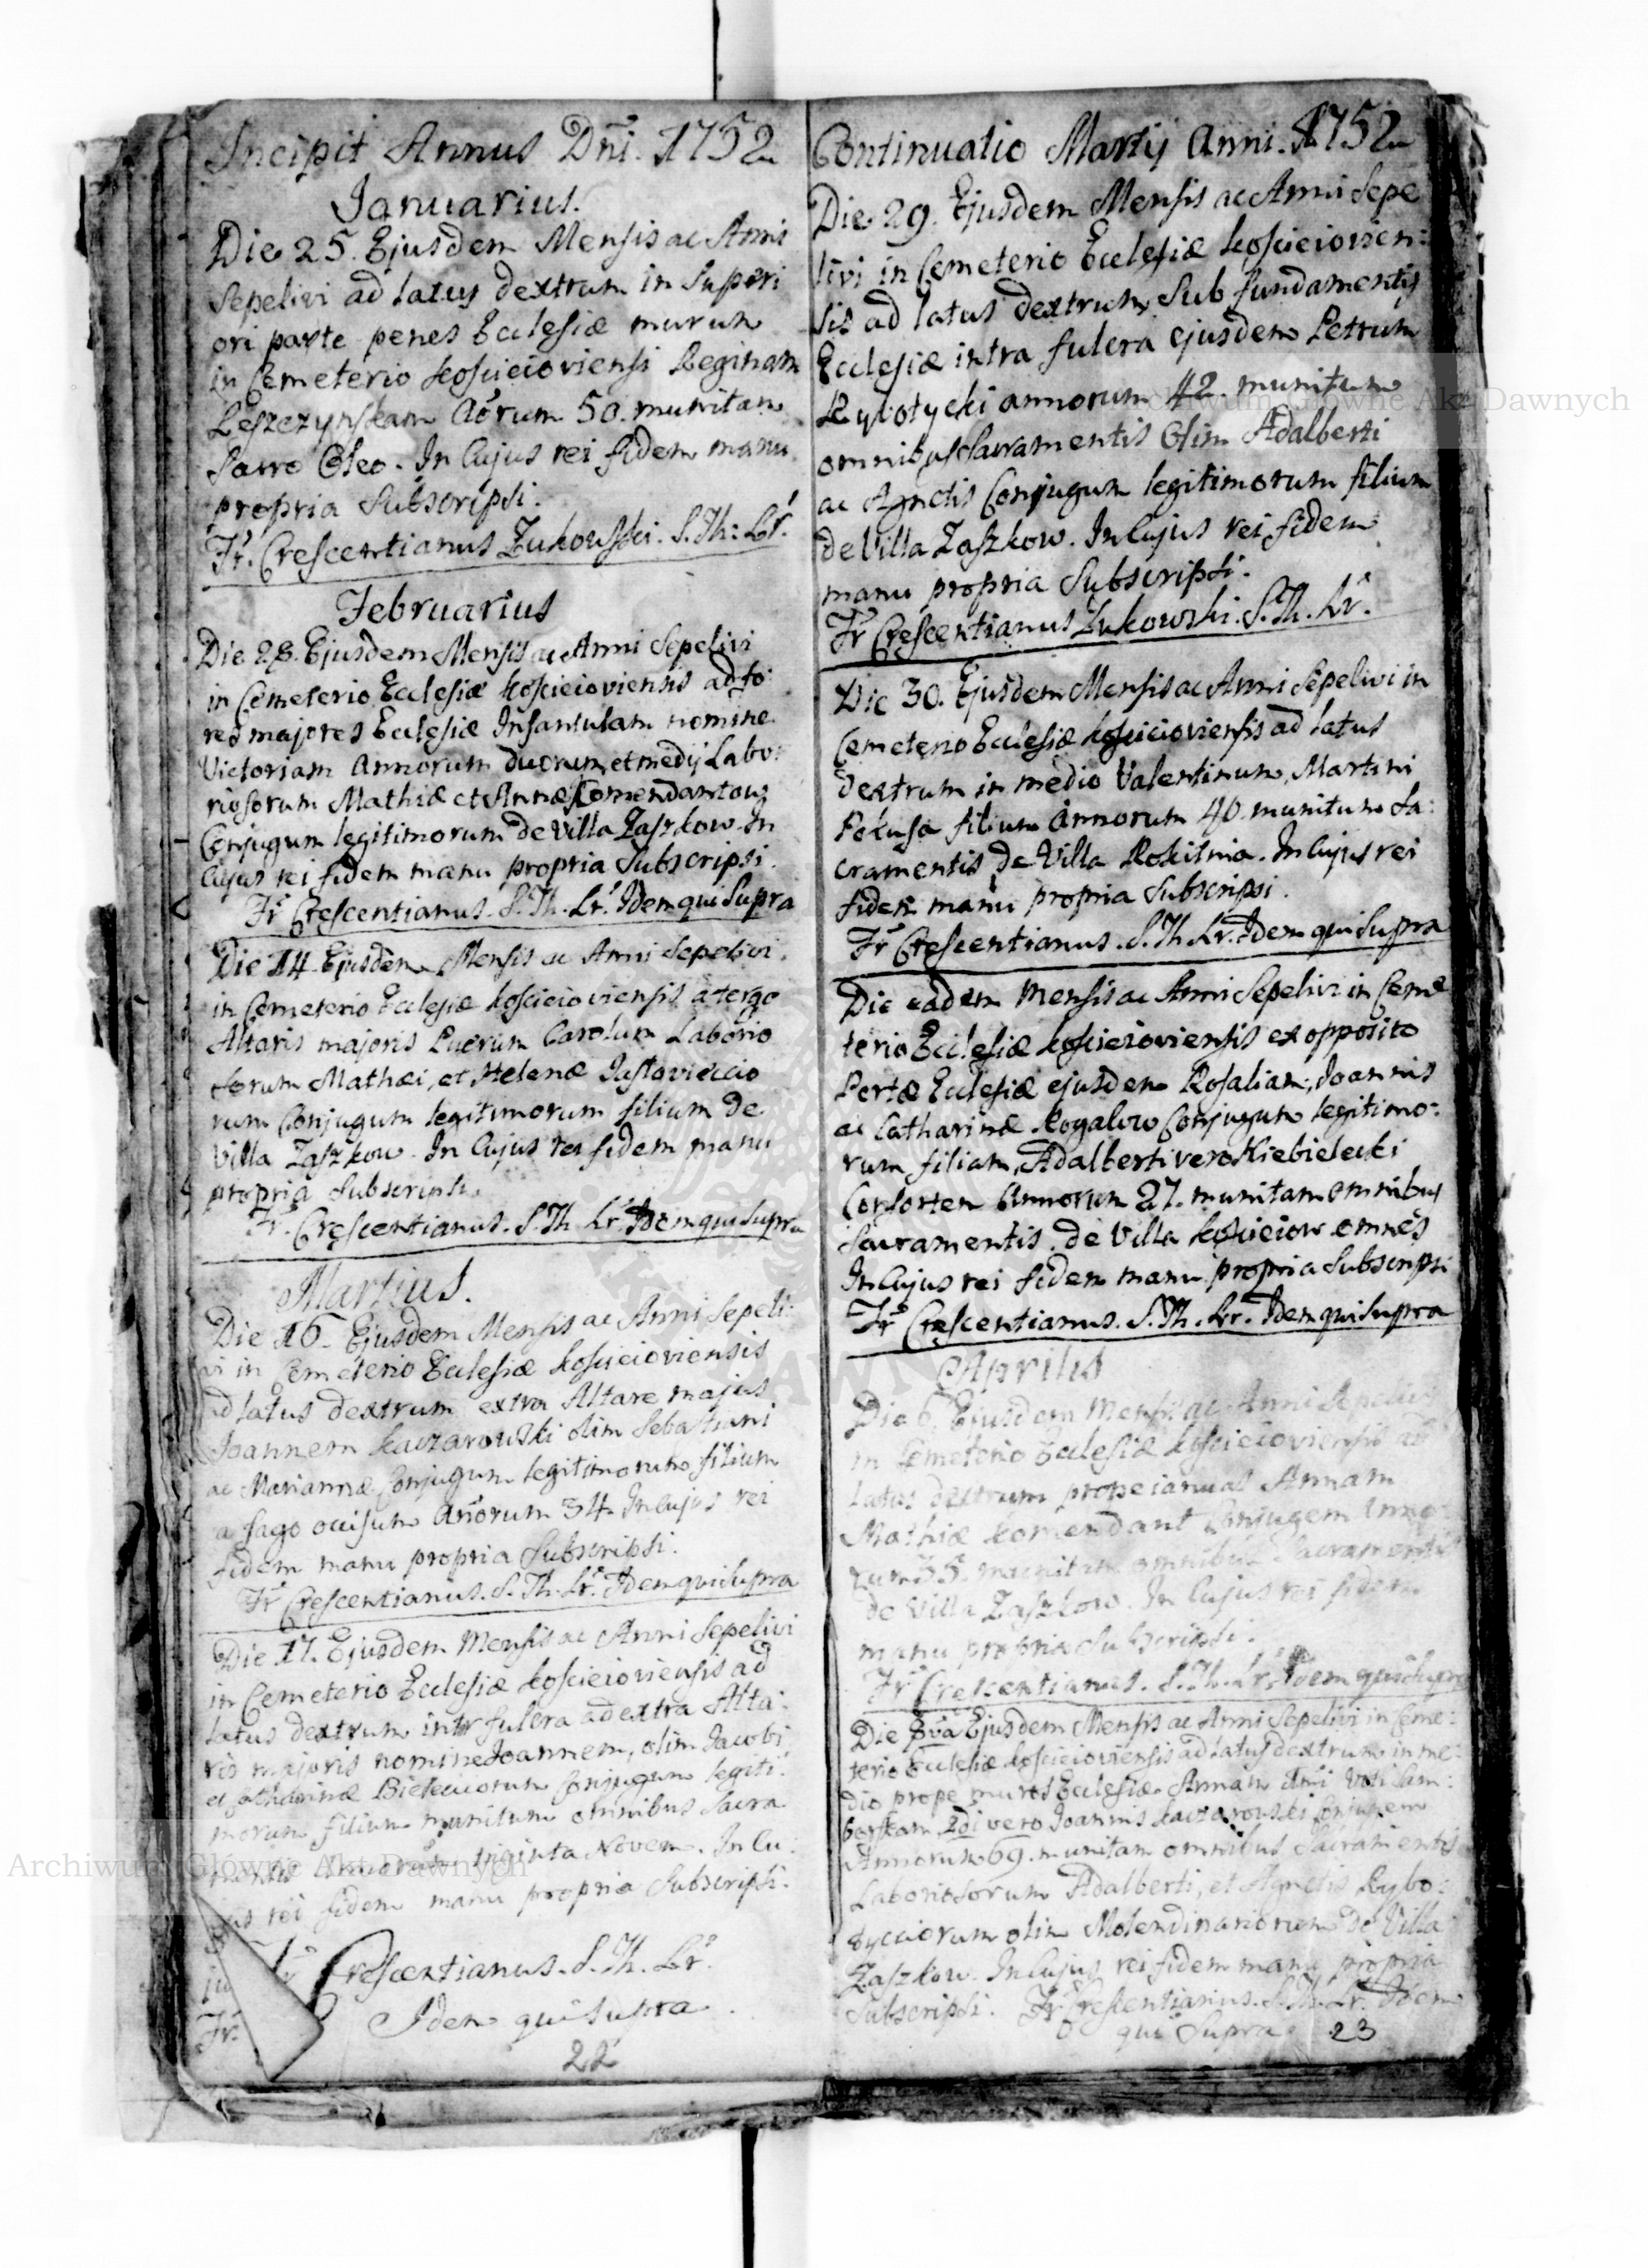 Incipit Annus Dni. 1752
Januarius.
Die 25. Ejusdem Mensis ac Anni
Sepelivi ad latus dextrum in Superi
ori parte penes Ecclesiæ murum
in Cemeterio Koscieioviensi Reginam
Leszczynskam Anorum 50. munitam
Sacro Oleo. In Cujus rei fidem manu
propria Subscripsi.
Fr. Crescentianus Zukowski. S. Th: Lr.
Februarius
Die 28. Ejusdem Mensis ac Anni Sepelivi
in Cemeterio Ecclesiæ Koscieioviensis ad fo:
res majores Ecclesiæ Infantulam nomine
Victoriam Annorum duorum et medij Labo:
riosorum Mathiæ et Annæ Comendantow
Conjugum legitimorum de Villa Zaszkow. In
Cujus rei fidem manu propria Subscripsi.
Fr Crescentianus. S. Th. Lr. Idem qui Supra
Die 14 Ejusdem Mensis ac Anni Sepelivi
in Cemeterio Ecclesiæ Koscieioviensis a tergo
Altaris majoris Puerum Carolum Laborio
sorum Mathæi, et Helenæ
rum Conjugum legitimorum filium de
Villa Zaszkow. In Cujus rei fidem manu
propria Subscripsi.
Fr. Crescentianus. S. Th. Lr. Idem qui Supra
Martius.
Die 16. Ejusdem Mensis ac Anni Sepeli:
vi in Cemeterio Ecclesiæ Koscieioviensis
ad latus dextrum extra Altare majus
Joannem Kaczarowski olim Sebastiani
ac Mariannæ Conjugum legitimorum filium
a sago occisum Anorum 34. In Cujus rei
fidem manu propria Subscripsi.
Fr Crescentianus. S. Th. Lr. Idem qui Supra
Die 17. Ejusdem Mensis ac Anni Sepelivi
in Cemeterio Ecclesiæ Koscieioviensis ad
latus dextrum intr fulcra ad extra Alta:
ris majoris nomine Joannem, olim Jacobi
et Catharinæ Bieleuiorum Conjugum legiti:
morum filium munitum omnibus Sacra
mentis Annorum triginta Novem. In Cu:
jus rei fidem manu propria Subscripsi.
Fr Crescentianus. S. Th. Lr.
Idem qui Supra.
22
Continuatio Martij Anni. 1752
Die 29. Ejusdem Mensis ac Anni Sepe
livi in Cemeterio Ecclesiæ Koscieiovien:
sis ad latus dextrum Sub fundamentis
Ecclesiæ intra fulcra ejusdem Petrum
Rybotycki annorum 42. munitum
omnibus Sacramentis Olim Adalberti
ac Agnetis Conjugum legitimorum filium
de Villa Zaszkow. In Cujus rei fidem
manu propria Subscripsi.
Fr Crescentianus Zukowski. S. Th. Lr.
Die 30. Ejusdem Mensis ac Anni Sepelivi in
Cemeterio Ecclesiæ Koscieioviensis ad latus
dextrum in medio Valentinum, Martini
Pokusa filium Annorum 40. munitum Sa:
cramentis de Villa Rokitnia. In Cujus rei
fidem manu propria Subscripsi.
Fr Crescentianus. S. Th. Lr. Idem qui Supra
Die eadem Mensis ac Anni Sepelivi in Ceme
terio Ecclesiæ Koscieioviensis ex opposito
Portæ Ecclesiæ ejusdem Rosaliam, Joannis
ac Catharinæ Rogalow Conjugum legitimo:
rum filiam, Adalberti vero Kiebielecki
Consortem Annorum 27. munitam omnibus
Sacramentis. de Villa Koscieiow omnes
In Cujus rei fidem manu propria Subscripsi
Fr Crescentianus. S. Th. Lr. Idem qui Supra
Aprilis
Die 6. Ejusdem Mensis ac Anni Sepelivi
in Cemeterio Ecclesiæ Koscieioviensis ad
latus dextrum prope ianuas Annam
Mathiæ Komendant Conjugem Anno:
rum 35. munitam omnibus Sacramentis
de Villa Zaszkow. In Cujus rei fidem
manu propria Subscripsi.
Fr Crescentianus. S. Th. Lr. Idem qui Supra
Die 8va Ejusdem Mensis ac Anni Sepelivi in Ceme:
terio Ecclesiæ Koscieioviensis ad latus dextrum in me:
dio prope muros Ecclesiæ Annam 1mi Voti Sam:
borskam 2di vero Joannis Kaczarowski Conjugem
Annorum 69. munitam omnibus Sacramentis
Laboriosorum Adalberti, et Agnetis Rybo:
tycciorum olim Molendinariorum De Villa
Zaszkow. In Cujus rei fidem manu propria
Subscripsi. Fr Crescentianus. S. Th. Lr. Idem
qui Supra. 23
Archiwum Główne Akt Dawnych
Archiwum Główne Akt Dawnych